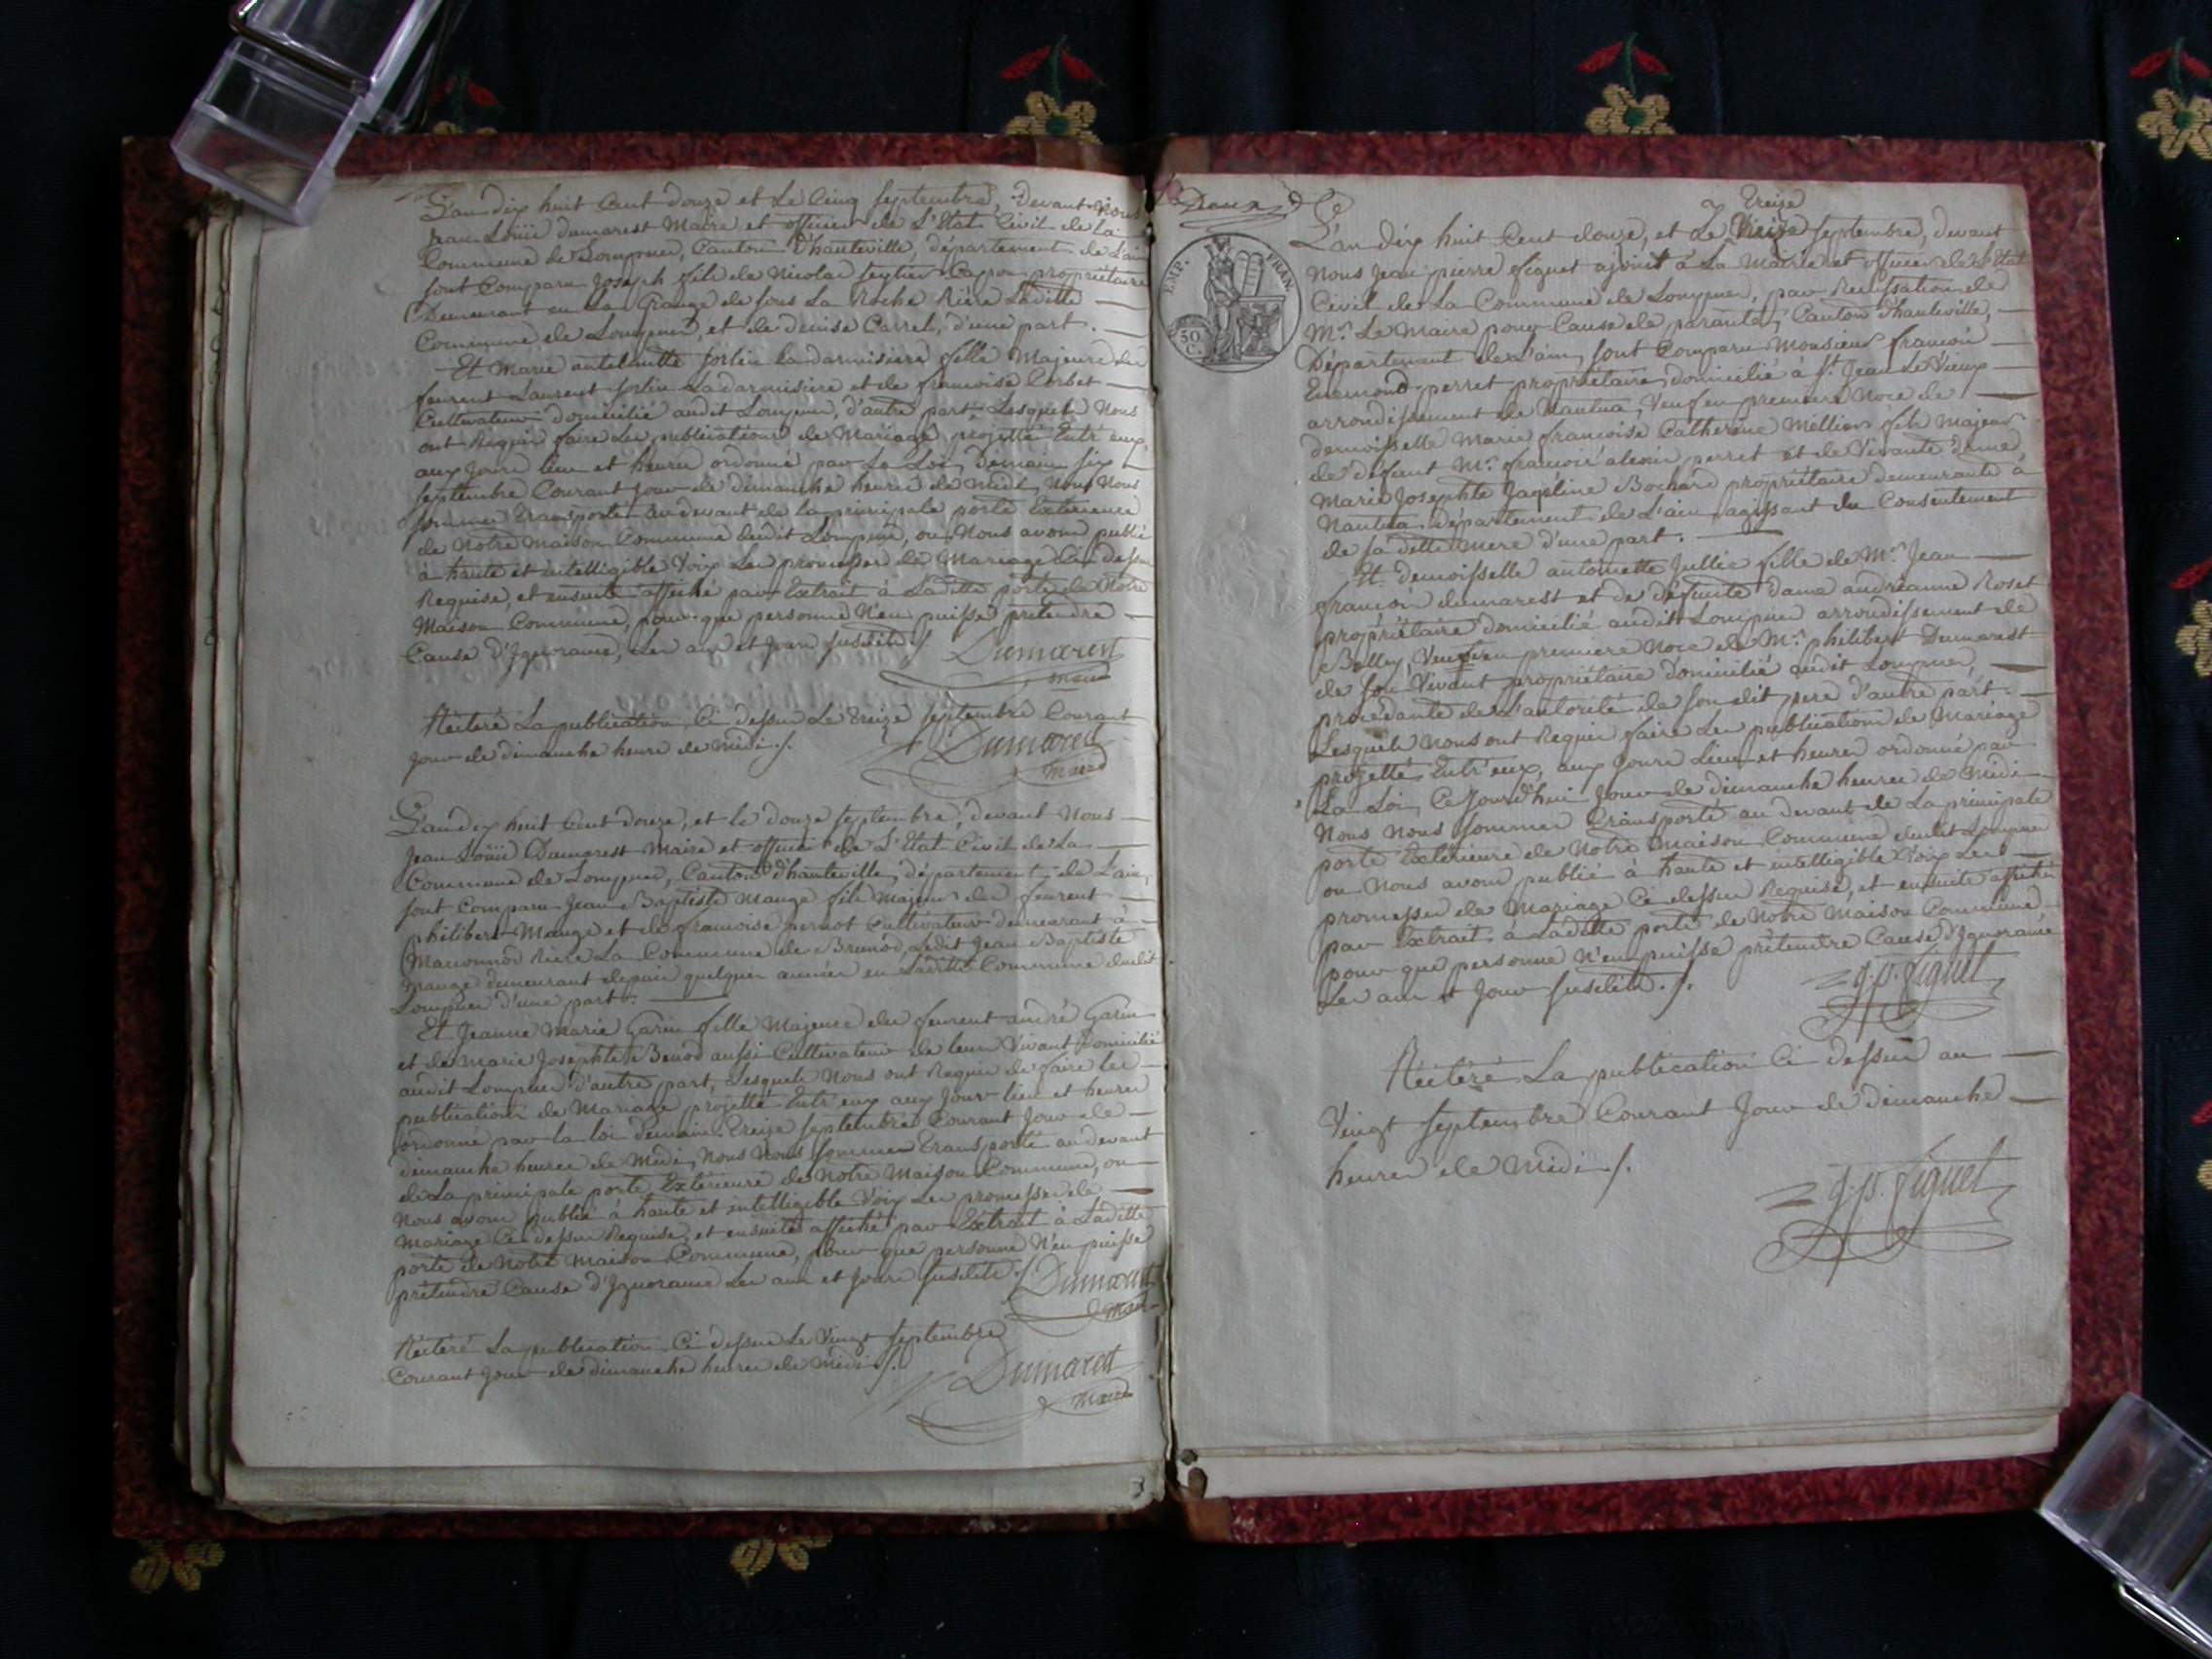 L'an dix huit Cent douze et Le Cinq septembre, devant Nous
Jean Loüis dumarest Maire et officier de L'Etat Civil de La
Commune de Lompnes, Canton d'hauteville, département de L'ain
sont Comparu Joseph fils de Nicolas propriétaire
Demeurant en La Grange de sous La Roche Rière Laditte
Commune de Lompnes, et de denise Carrel, d'une part.
Et Marie antelmette fortin Ladarmisiere fille Majeure des
feurent Laurent fortin Ladarmisiere et de francoise Corbet
Cultivateur domicilié audit Lompnes, d'autre part. Lesquels Nous
ont Requis faire Les publications de Mariage projetté Entr'eux
aux Jours lieu et heures ordonné par La Loi, Demain six
septembre Courant Jour de dimanche heures de Midi, Nous Nous
sommes transporté au devant de la principale porte Exterieure
de Notre Maison Commune dudit Lompnes, ou Nous avons publié
à haute et intelligible Voix Les promesses de Mariage Ci dessus
Requise, et ensuite affiché par Extrait à Laditte porte de Notre
Maison Commune, pour que personne N'en puisse prétendre
Cause d'Ignorance, Les an et Jours susdits ./. Dumarest
maire
Réiteré La publication Ci dessus Le treize septembre Courant
Jour de dimanche heure de Midi ./. Dumarest
maire
L'an dix huit Cent douze, et le douze septembre, devant Nous
Jean Loüis Dumarest Maire et officier de L'Etat Civil de La
Commune de Lompnes, Canton d'hauteville, département de L'ain,
sont Comparu Jean Baptiste Mange fils Majeur des feurent
philibert Mange et de francoise pernot Cultivateur demeurant à
Maconnod Rière La Commune de Brenod, Ledit Jean Baptiste
Mange demeurant depuis quelques années en Laditte Commune dudit
Lompnes d'une part.
Et Jeanne Marie Garin fille Majeure des feurent andré Garin
et de Marie Josephte Benod aussi Cultivateur de leur Vivant Domicilié
audit Lompnes d'autre part, Lesquels Nous ont Requis de faire les
publications de Mariage projetté Entr'eux aux Jour lieu et heures
ordonné par la loi Demain treize septembre Courant Jour de
dimanche heures de Midi, Nous Nous sommes transporté au devant
de La principale porte Exterieure de Notre Maison Commune, ou
Nous avons publié à haute et intelligible Voix Les promesses de
Mariage Ci dessus Requise, et ensuite affiché par Extrait à Laditte
porte de Notre Maison Commune, pour que personne N'en puisse
prétendre Cause d'Ignorance Les an et Jours susdits ./. Dumarest
maire
Réiteré La publication Ci dessus Le Vingt septembre
Courant Jour de dimanche heures de Midi ./. Dumarest
maire
Deux
EMP. FRAN.
50
C.
treize
L'an dix huit Cent douze, et Le treize septembre, devant
Nous Jean pierre figuet ajoint à La Mairie et officier de L'Etat
Civil de La Commune de Lompnes, par Recusation de
Mr. Le Maire pour Cause de paranté, Canton d'hauteville,
Département de L'ain, sont Comparu Monsieur francois
Enemond perret propriétaire domicilié à St. Jean Le Vieux
arrondissement de Nantua, Veuf en premiere Noce de
demoisselle Marie francoise Catherine Méllier fils Majeur
de défunt Mr. francois alexis perret et de Vivante dame
Marie Josephte Jaqeline Bochard propriétaire demeurante à
Nantua, Département de L'ain agissant du Consentement
de sa ditte mere d'une part.
Et demoisselle antoinette Jullie fille de Mr. Jean
francois dumarest et de défunte dame andréanne Roset
propriétaire domicilié audit Lompnes arrondissement de
Belley, Veuve en premiere Noce de Mr. philibert Dumarest
de son Vivant propriétaire Domicilié audit Lompnes,
procedante de L'autorité de son dit pere d'autre part.
Lesquels Nous ont Requis faire Les publications de Mariage
projetté Entr'eux, aux Jours Lieu et heures ordonné par
La Loi, Ce Jourd'hui Jour de dimanche heures de Midi
Nous Nous sommes transporté au devant de La principale
porte Exterieure de Notre Maison Commune dudit Lompnes
ou Nous avons publié à haute et intelligible Voix Les
promesses de Mariage Ci dessus Requise, et ensuite affiché
par Extrait à Laditte porte de Notre Maison Commune
pour que personne N'en puisse prétendre Cause d'Ignorance
Les an et Jour susdits ./. J.p. figuet
Réiteré La publication Ci dessus au
Vingt septembre Courant Jour de dimanche
heures de Midi ./.
J.p. figuet